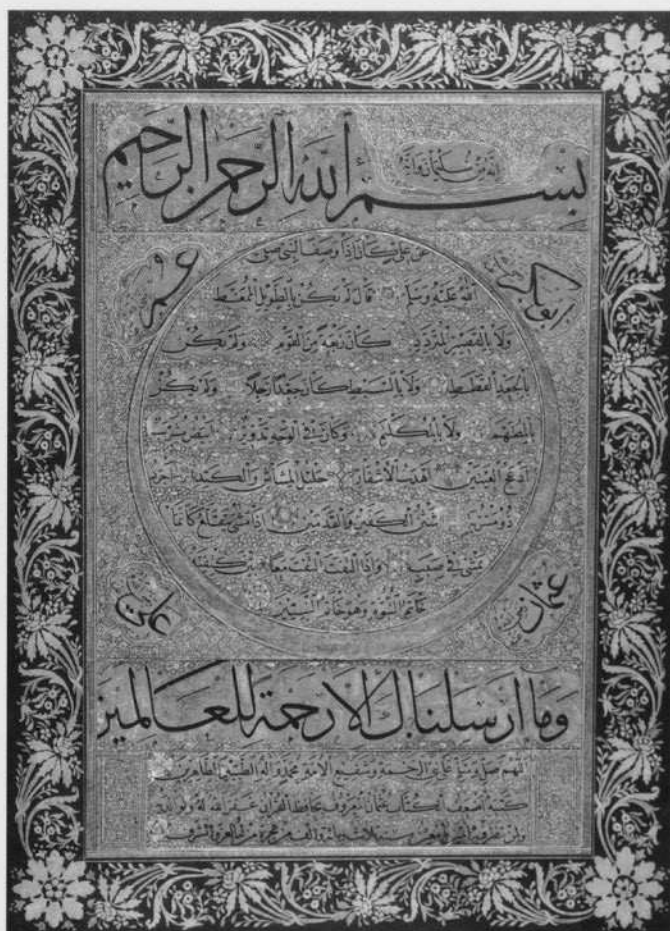 انه من سليمان وانه
بسم الله الرحمن الرحيم
ابوبكر
عمر
عن علي كان اذا وصف النبي صلى
الله عليه وسلم قال لم يكن بالطويل الممغط
ولا بالقصير المتردد كان ربعة من القوم ولم يكن
بالجعد القطط ولا بالسبط كان جعدا رجلا ولم يكن
بالمطهم ولا بالمكلثم وكان في الوجه تدوير ابيض مشرب
ادعج العينين اهدب الاشفار جليل المشاش والكتد اجرد
ذو مسربة شثن الكفين والقدمين اذا مشى يتقلع كانما
يمشي في صبب واذا التفت التفت معا بين كتفيه
خاتم النبوة وهو خاتم النبيين
عثمان
علي
وما ارسلناك الا رحمة للعالمين
اللهم صل وسلم على نبي الرحمة وشفيع الامة محمد واله الطيبين الطاهرين
كتبه اضعف الكتاب عثمان المعروف بحافظ القرآن غفر الله له ولوالديه
سنة ثلاث ومائة والف من هجرة من له العز والشرف